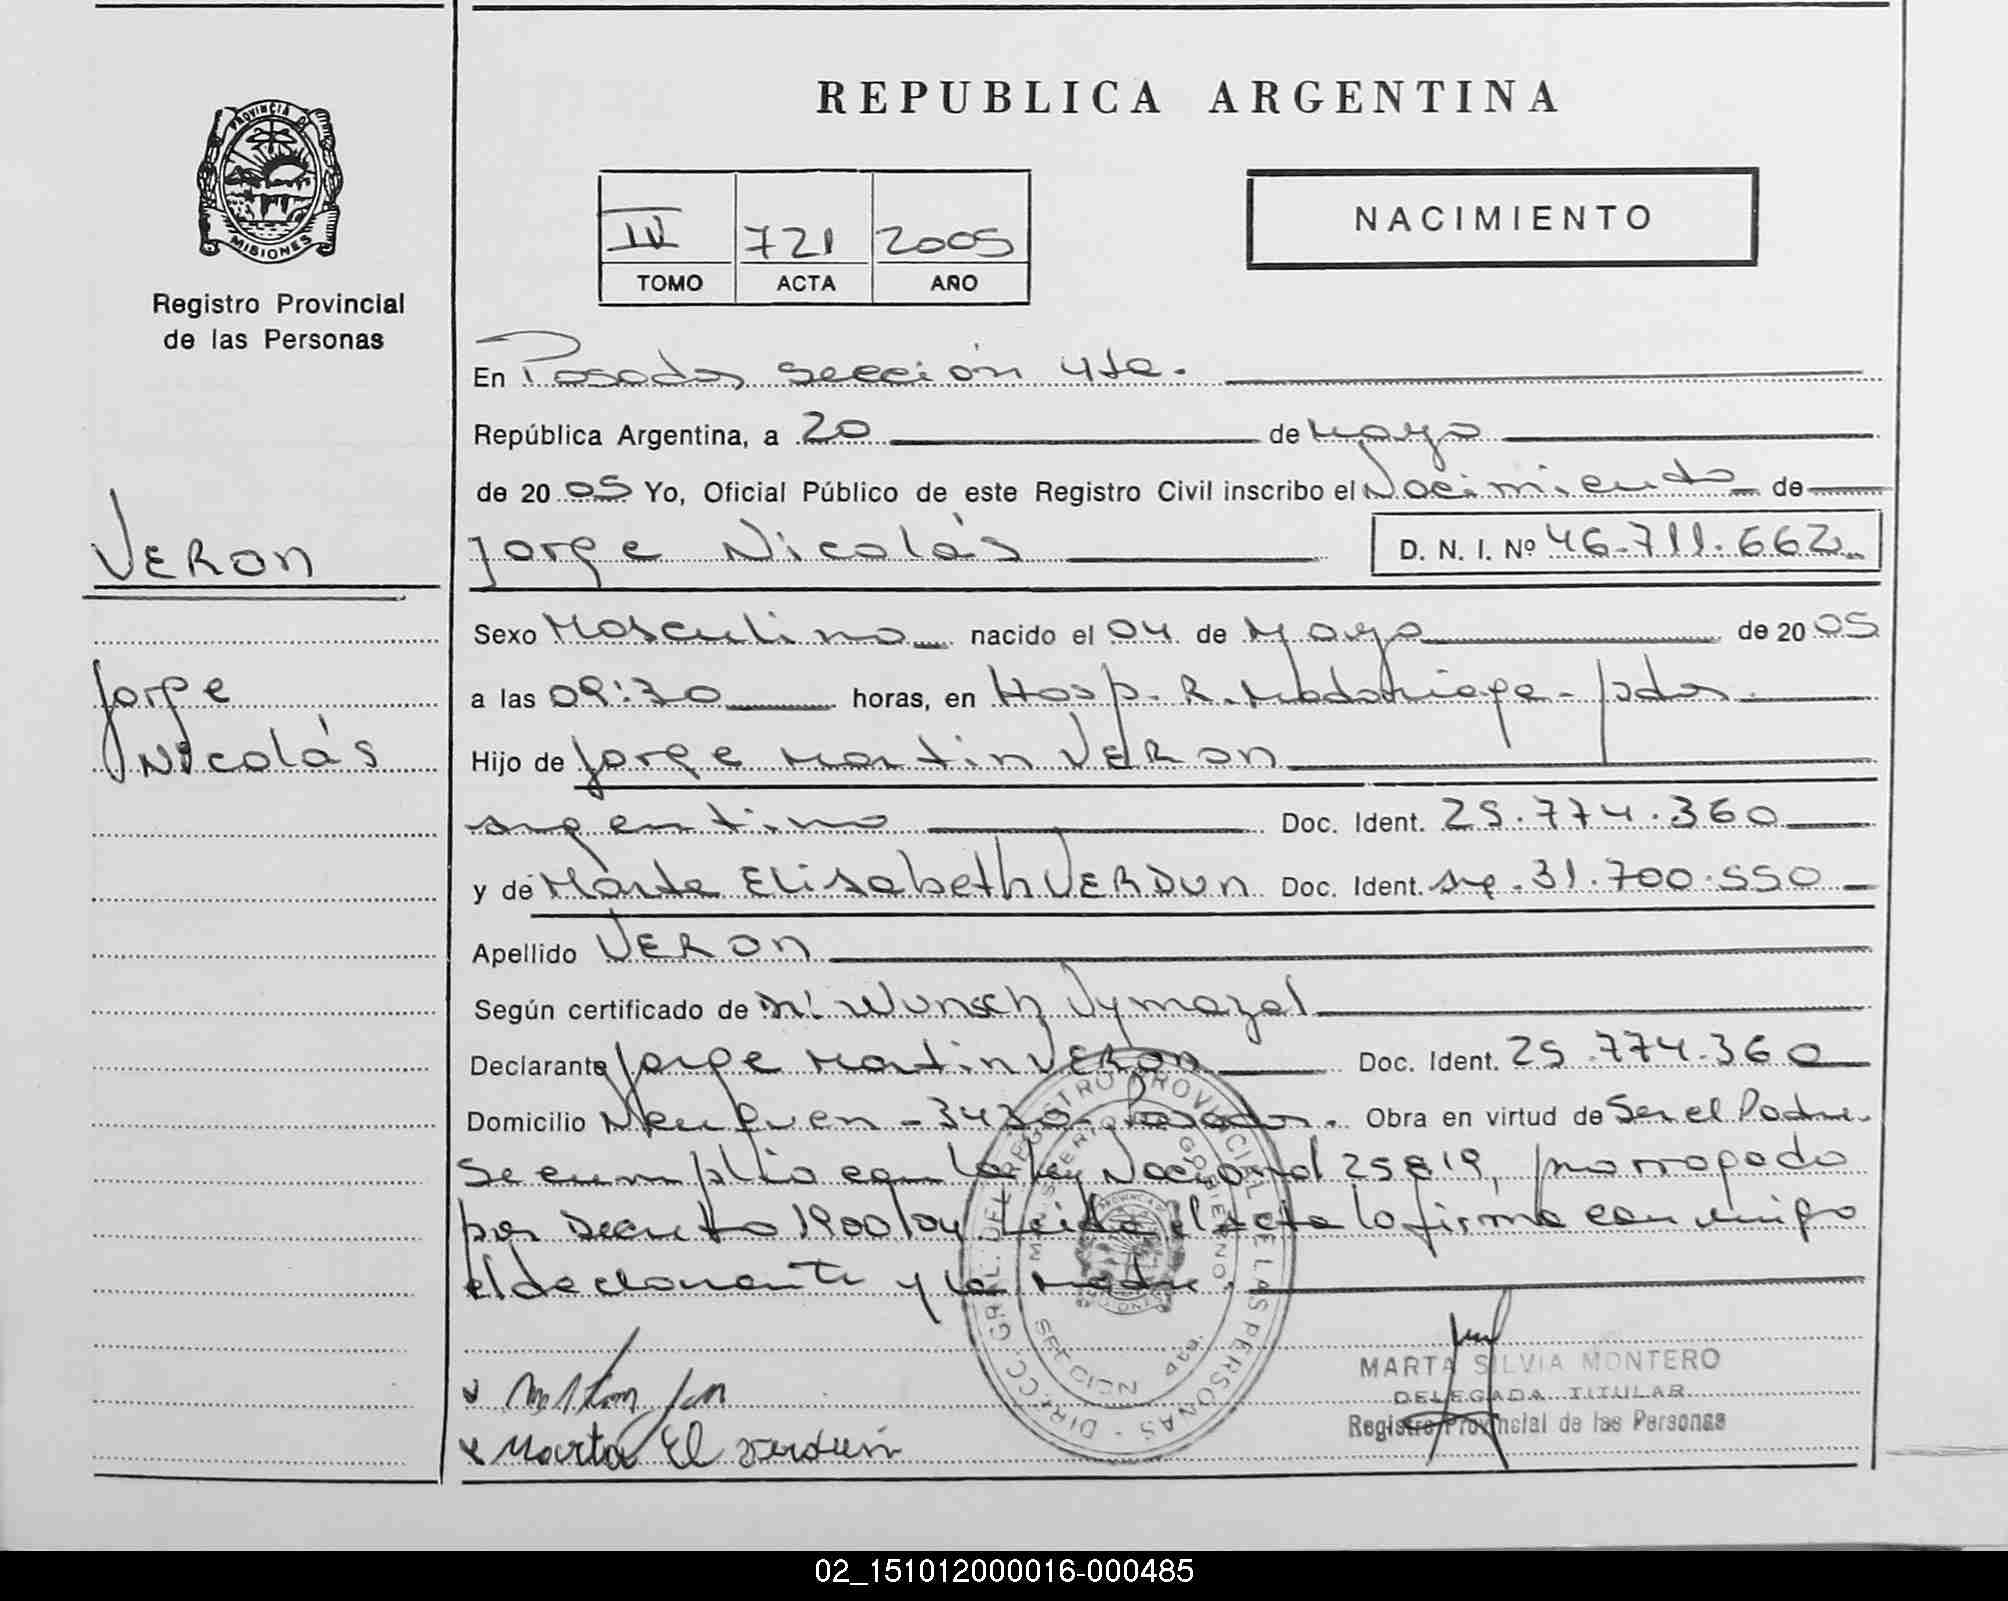 REPUBLICA ARGENTINA
PROVINCIA DE
MISIONES
Registro Provincial
de las Personas
IV 721 2005
TOMO ACTA AÑO
NACIMIENTO
En Posadas sección 4ta.
República Argentina, a 20 de Mayo
de 2005 Yo, Oficial Público de este Registro Civil inscribo el Nacimiento de
VERON
Jorge Nicolás D. N. I. Nº 46.711.662
Sexo Masculino nacido el 04 de Mayo de 2005
Jorge
Nicolás
a las 09:30 horas, en Hosp. R. Madariaga - pdas.
Hijo de Jorge Martin VERON
argentino Doc. Ident. 25.774.360
y de Marta Elisabeth VERDUN Doc. Ident. arg. 31.700.550
Apellido VERON
Según certificado de Wunsch Vymazal
Declarante Jorge Martin VERON Doc. Ident. 25.774.360
Domicilio Neuquen - 3430 Posadas. Obra en virtud de Ser el Padre.
Se cumplio con la ley Nacional 25819, prorrogado
por Decreto 1900/04 Leida el acta la firma con migo
el declarante y la Madre.
DIR. GRAL. DEL REGISTRO PROVINCIAL DE LAS PERSONAS
MINISTERIO DE GOBIERNO
SECCION 4ta.
MARTA SILVIA MONTERO
DELEGADA TITULAR
Registro Provincial de las Personas
Marta El verdun
02_151012000016-000485